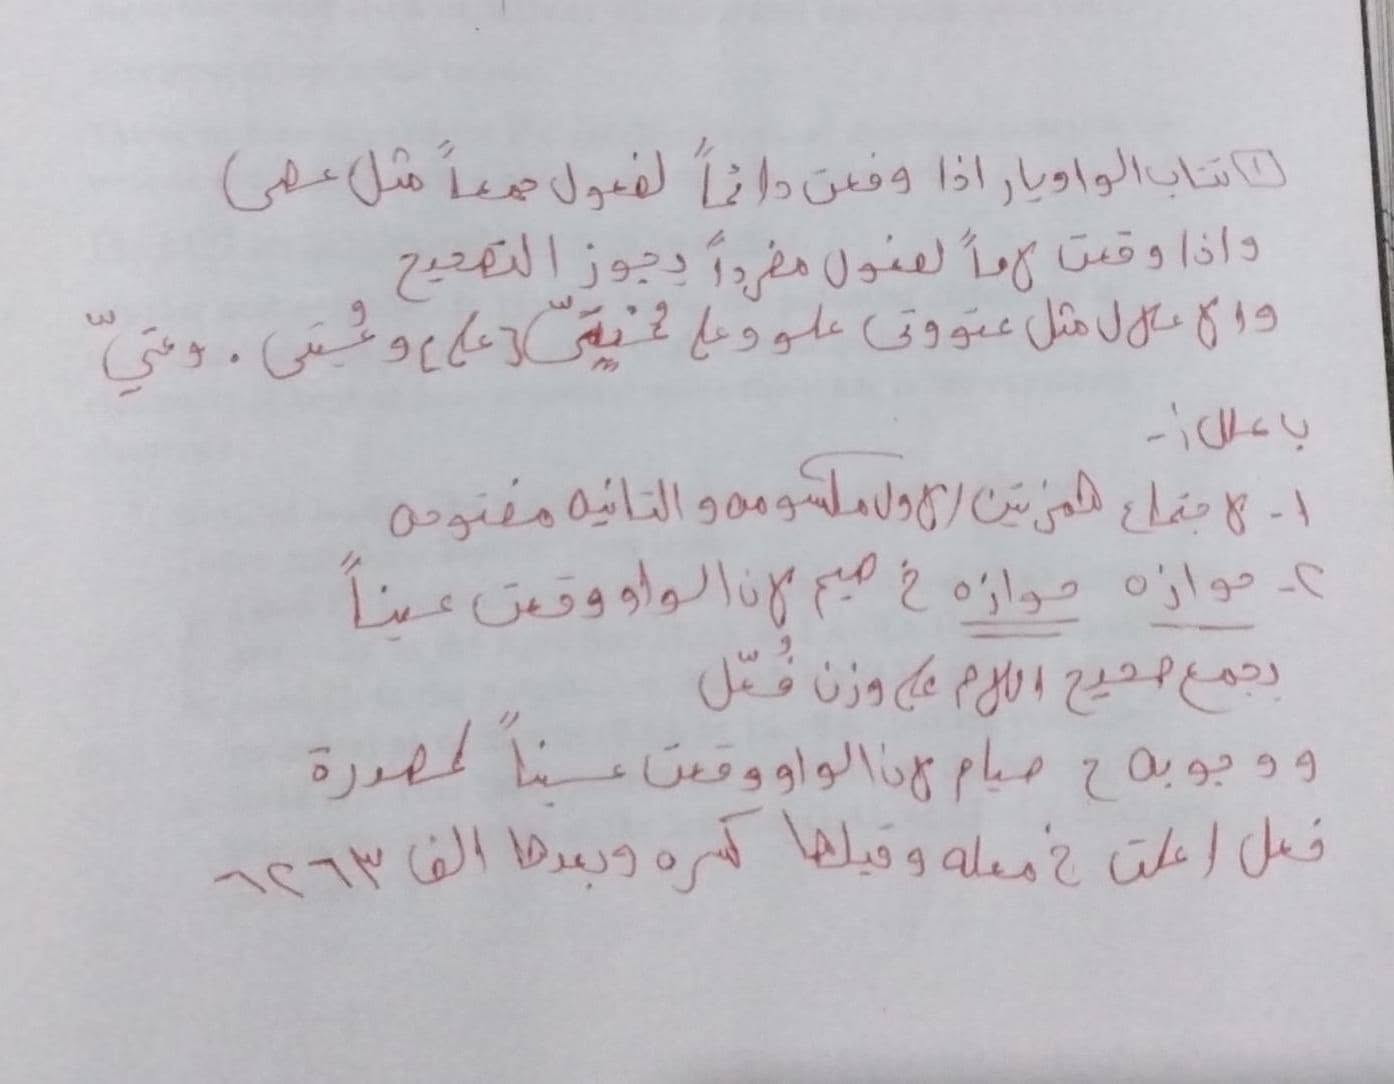 ١ تقلب الواو ياء اذا وقعت دائماً لفعول جمعاً مثل عصي
واذا وقعت لاماً لفعول مفرداً يجوز التصحيح
والاعلال مثل عتو علو وعلي وعُتي . وعتيّ
ب علل :-
١- لاجتماع همزتين الاولى مكسومه والثانيه مفتوحه
٢- جوازه جوازه في صيم لان الواو وقعت عيناً
بجمع صحيح اللام على وزن فُعّل
ووجوبه في صيام لان الواو وقعت عيناً لمصدرة
فعل اعلت في فعله وقبلها كسره وبعدها الف